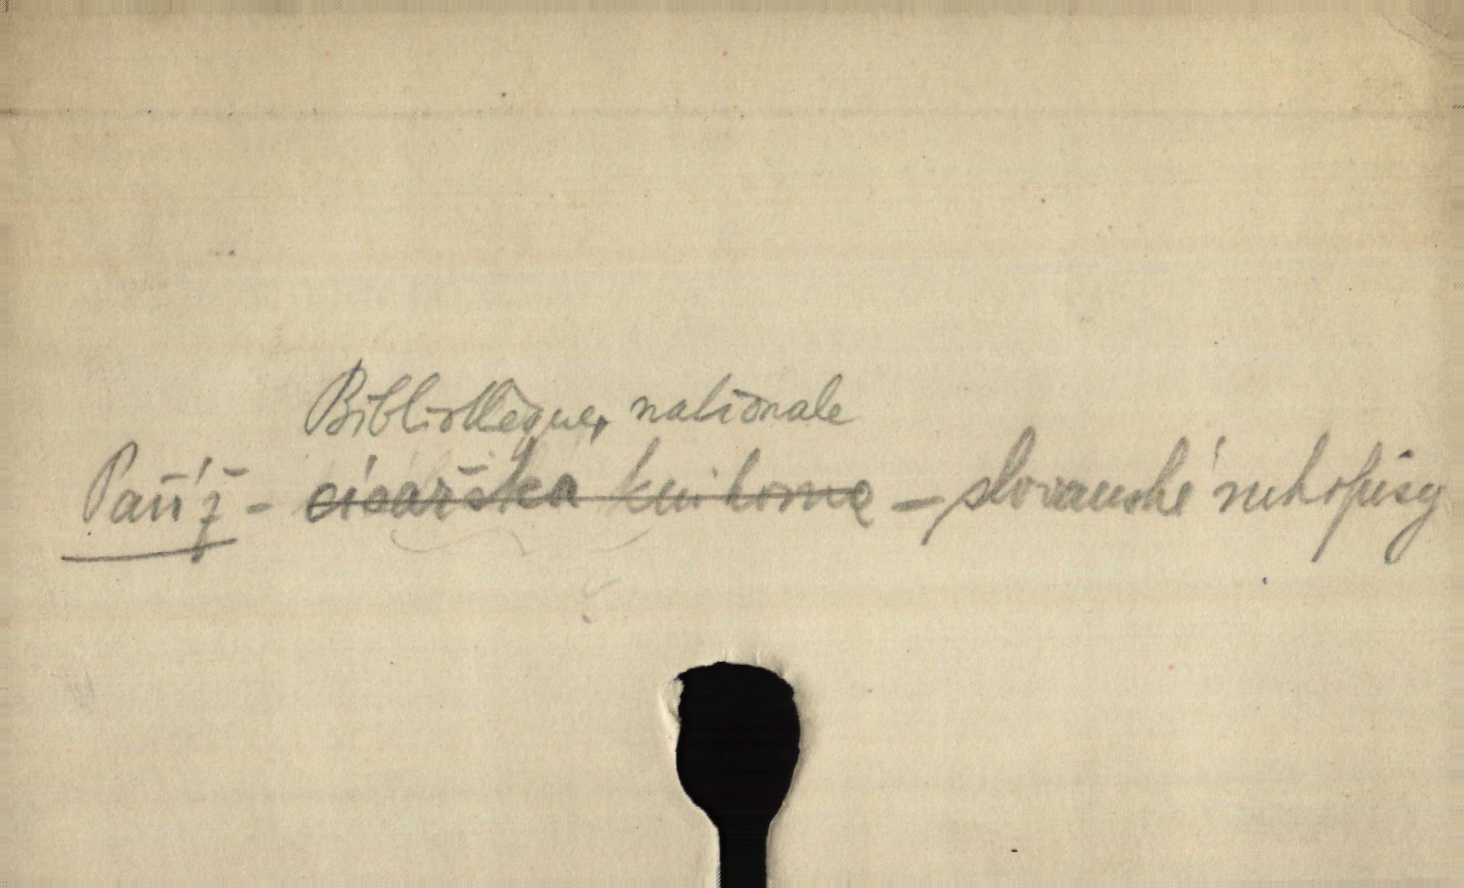 Bibliothèque nationale
Paříž - císařská knihovna - slovanské rukopisy